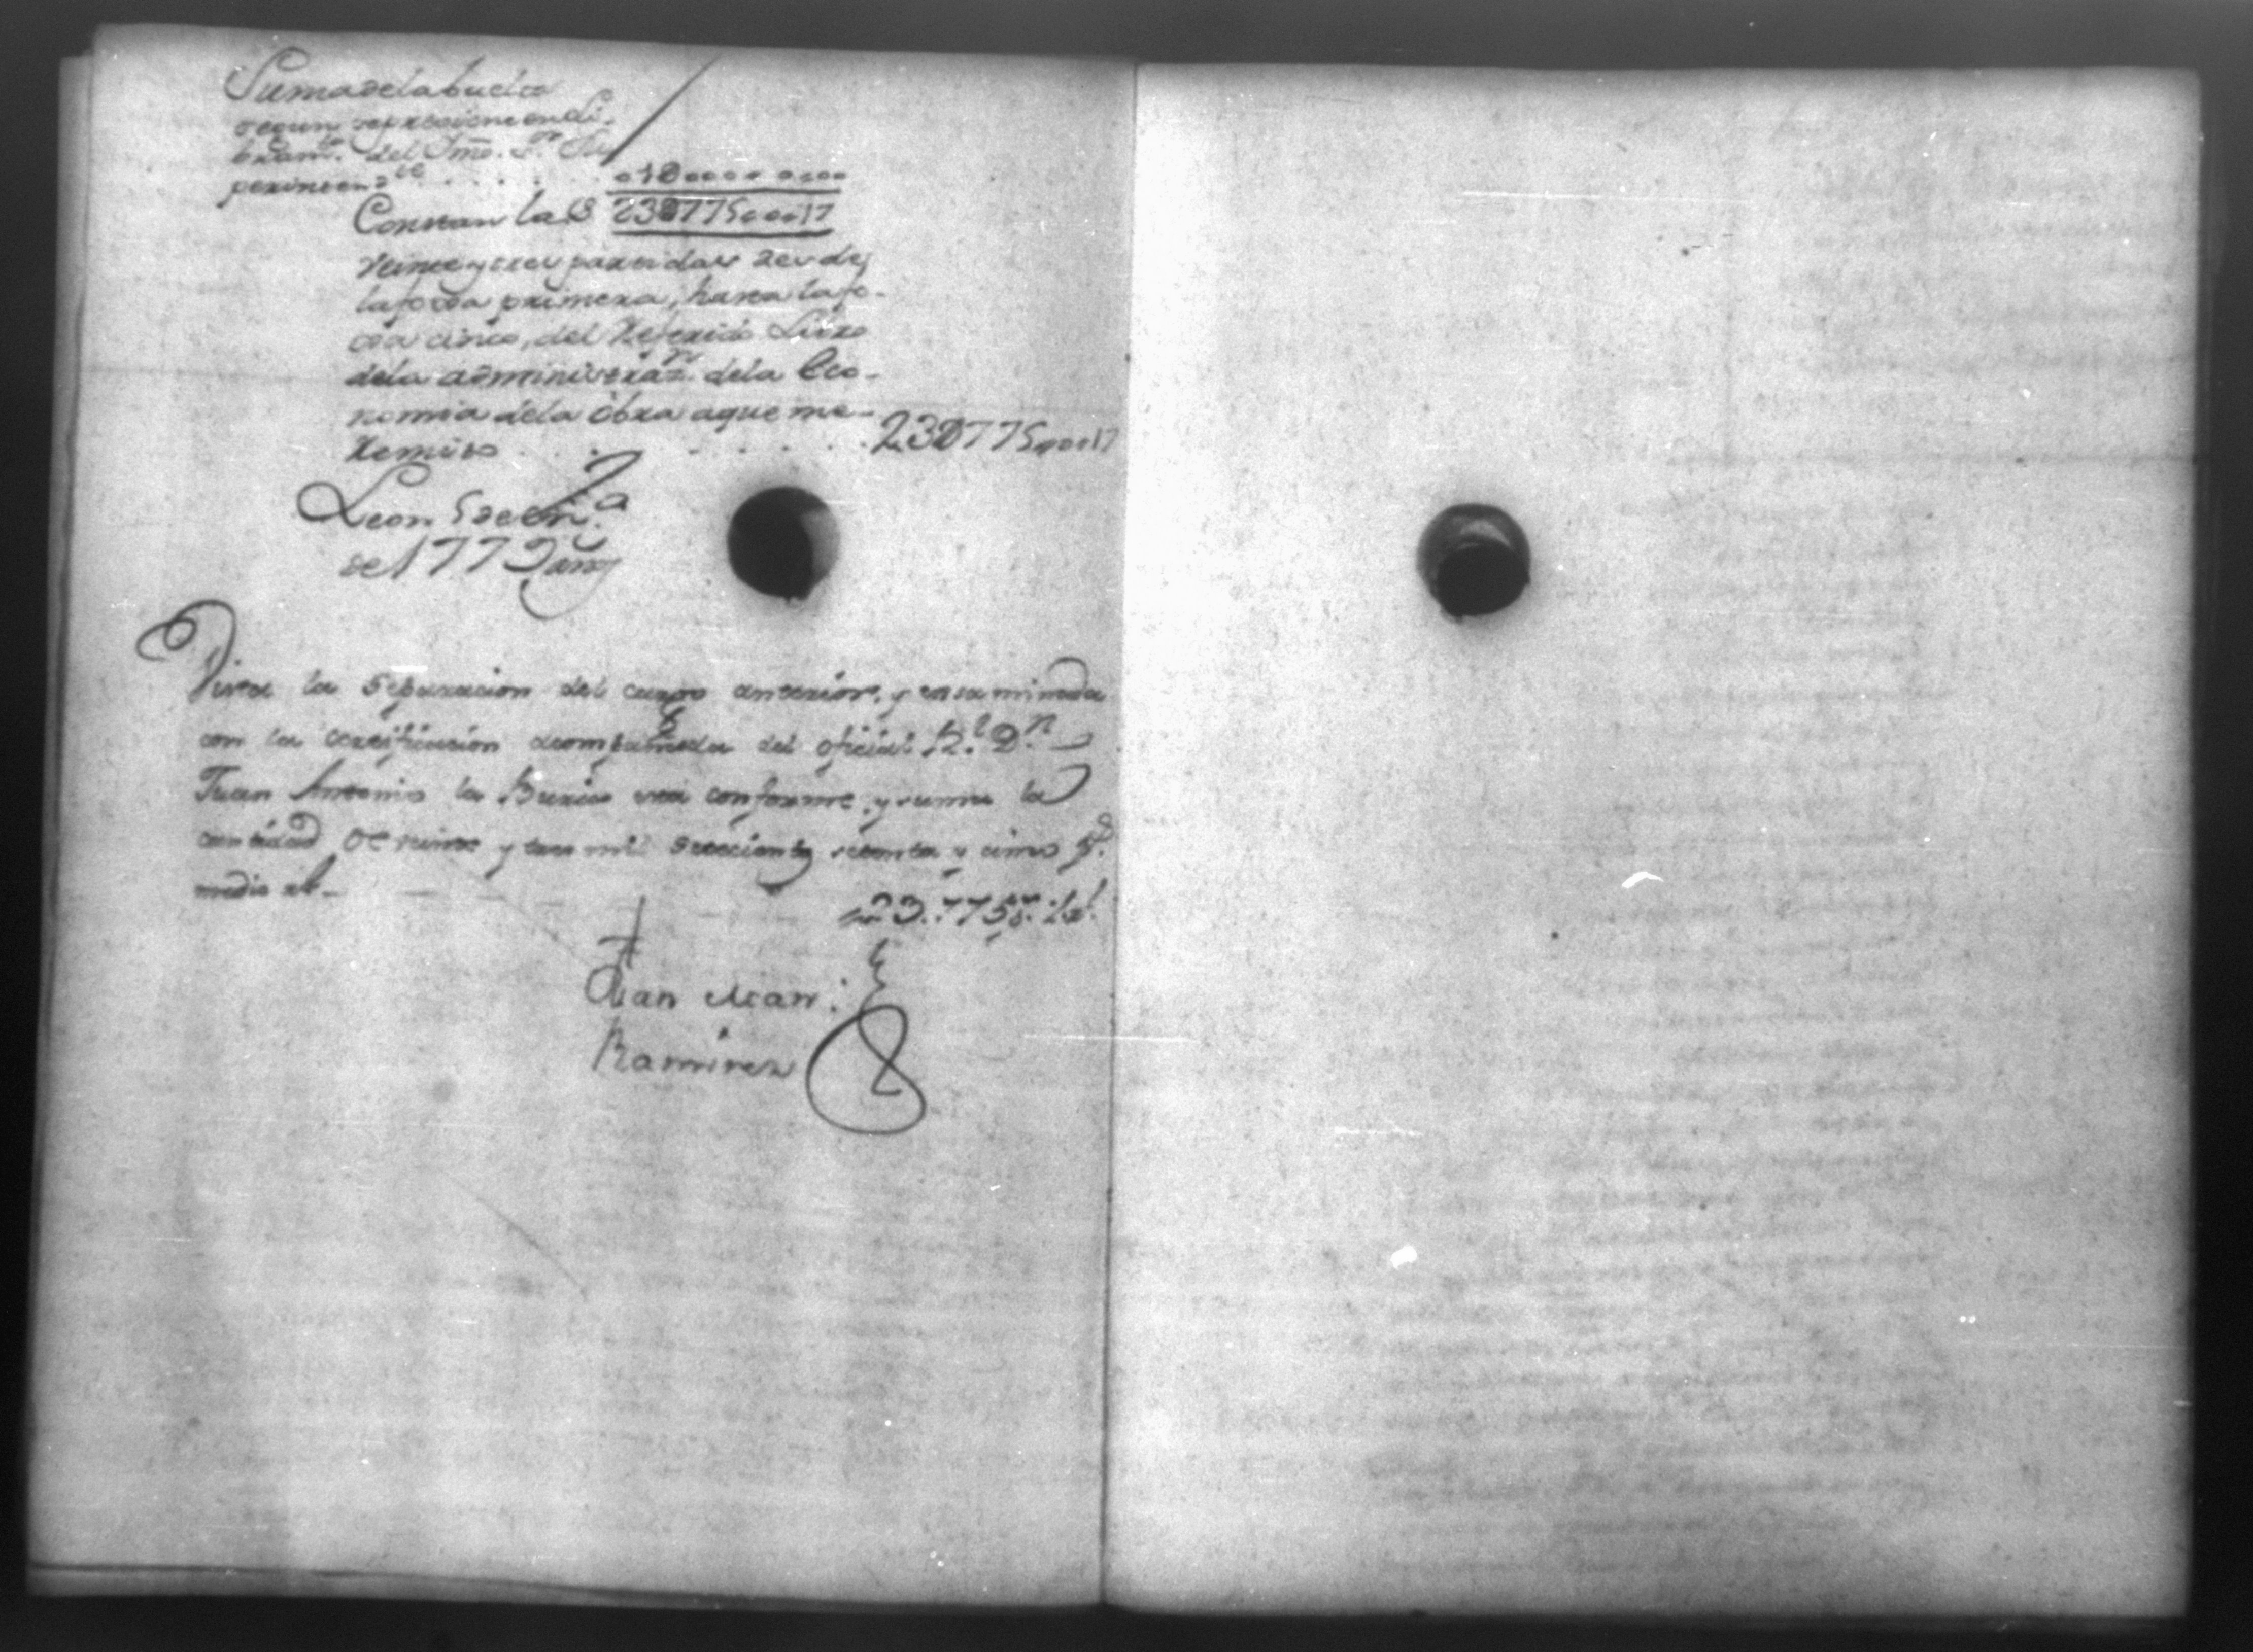 Suma dela buelta
segun se previene en Li-
bram.to del Yllmo. S.or Su
perintend.te . . . . . .
Constan las 23U775,,00,,17
veinte y tres partidas desde
la foxa primera, hasta la fo-
xa cinco, del Referido Libro
dela administraz.n dela Eco-
nomia dela obra aque me
Remito . . . . . . . 23U775,,00,,17
Leon 5 de En.o
de 1772 años
Vista la separacion del cargo anterior, y ensaminada
con la certificacion acompañada del oficial R.l D.n
Juan Antonio la Buria está conforme, y suma la
cantidad de veinte y tres mil setecientos setenta y cinco p.s
medio rl.
23.775p.s ½ rl.
Juan
Ramirez